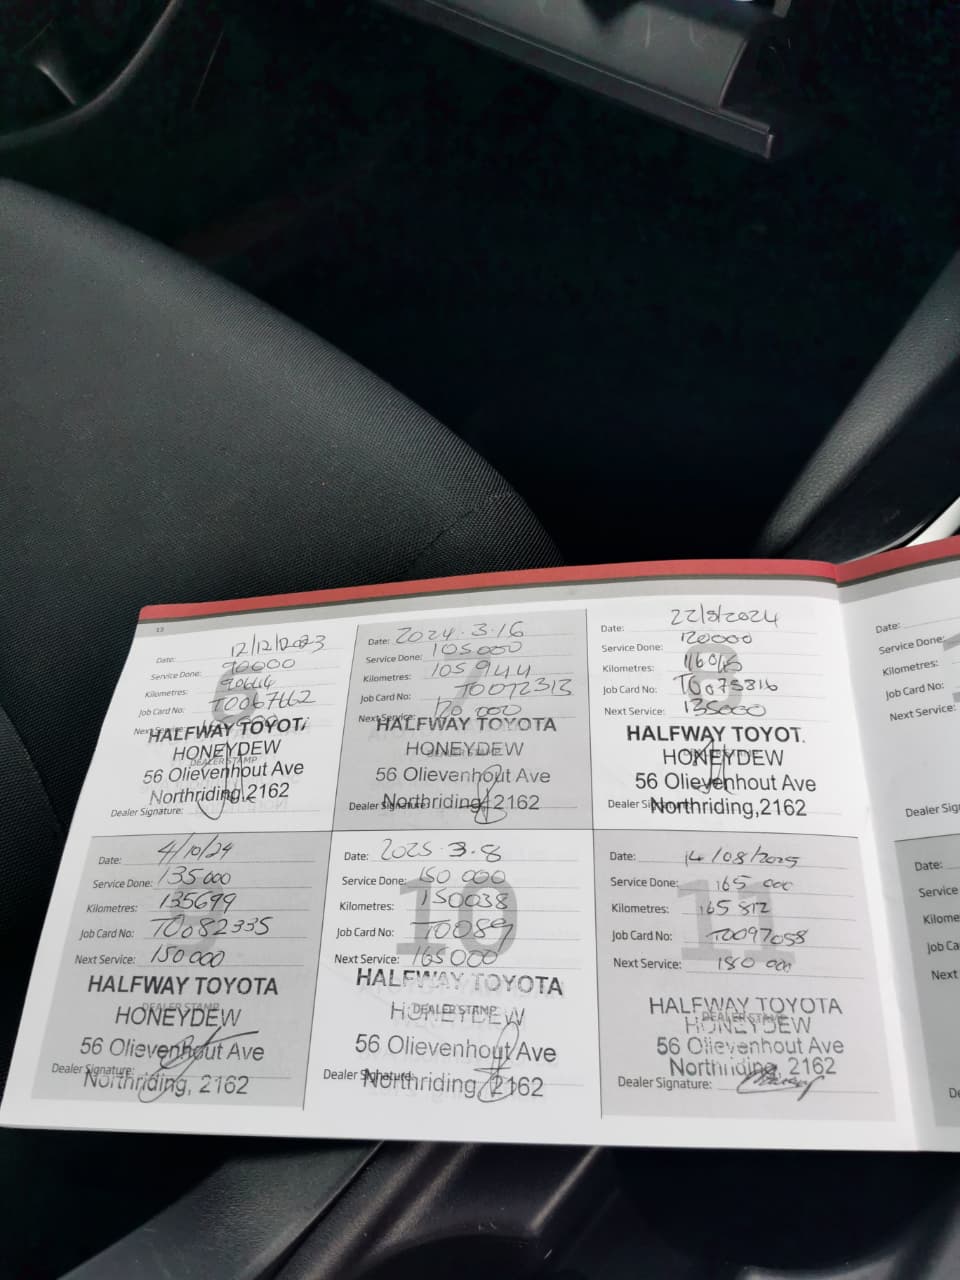 13
Date: 12/12/2023
Service Done: 90000
Kilometres: 90664
Job Card No: T0067762
Next Service:
HALFWAY TOYOT
HONEYDEW
DEALER STAMP
56 Olievenhout Ave
Northriding,2162
Dealer Signature:
7
Date: 2024.3.16
Service Done: 105000
Kilometres: 105944
Job Card No: T0072313
Next Service: 120 000
HALFWAY TOYOTA
HONEYDEW
56 Olievenhout Ave
Dealer Signature:
Northriding, 2162
8
Date: 22/8/2024
Service Done: 120000
Kilometres:
Job Card No:
Next Service: 135000
HALFWAY TOYOT.
HONEYDEW
56 Olievenhout Ave
Dealer
Northriding,2162
9
Date: 4/10/24
Service Done: 135000
Kilometres: 135699
Job Card No: T0082335
Next Service: 150000
HALFWAY TOYOTA
DEALER STAMP
HONEYDEW
56 Olievenhout Ave
Dealer Signature:
Northriding, 2162
10
Date: 2025.3.8
Service Done: 150 000
Kilometres: 150038
Job Card No: T0089
Next Service: 165000
HALFWAY TOYOTA
DEALER STAMP
HONEYDEW
56 Olievenhout Ave
Dealer Signature:
Northriding, 2162
11
Date: 14/08/2025
Service Done: 165 000
Kilometres: 165 812
Job Card No: T0097058
Next Service: 180 000
HALFWAY TOYOTA
DEALER STAMP
HONEYDEW
56 Olievenhout Ave
Northriding, 2162
Dealer Signature:
Date:
Service Done:
Kilometres:
Job Card No:
Next Service:
Dealer
Date:
Service
Next